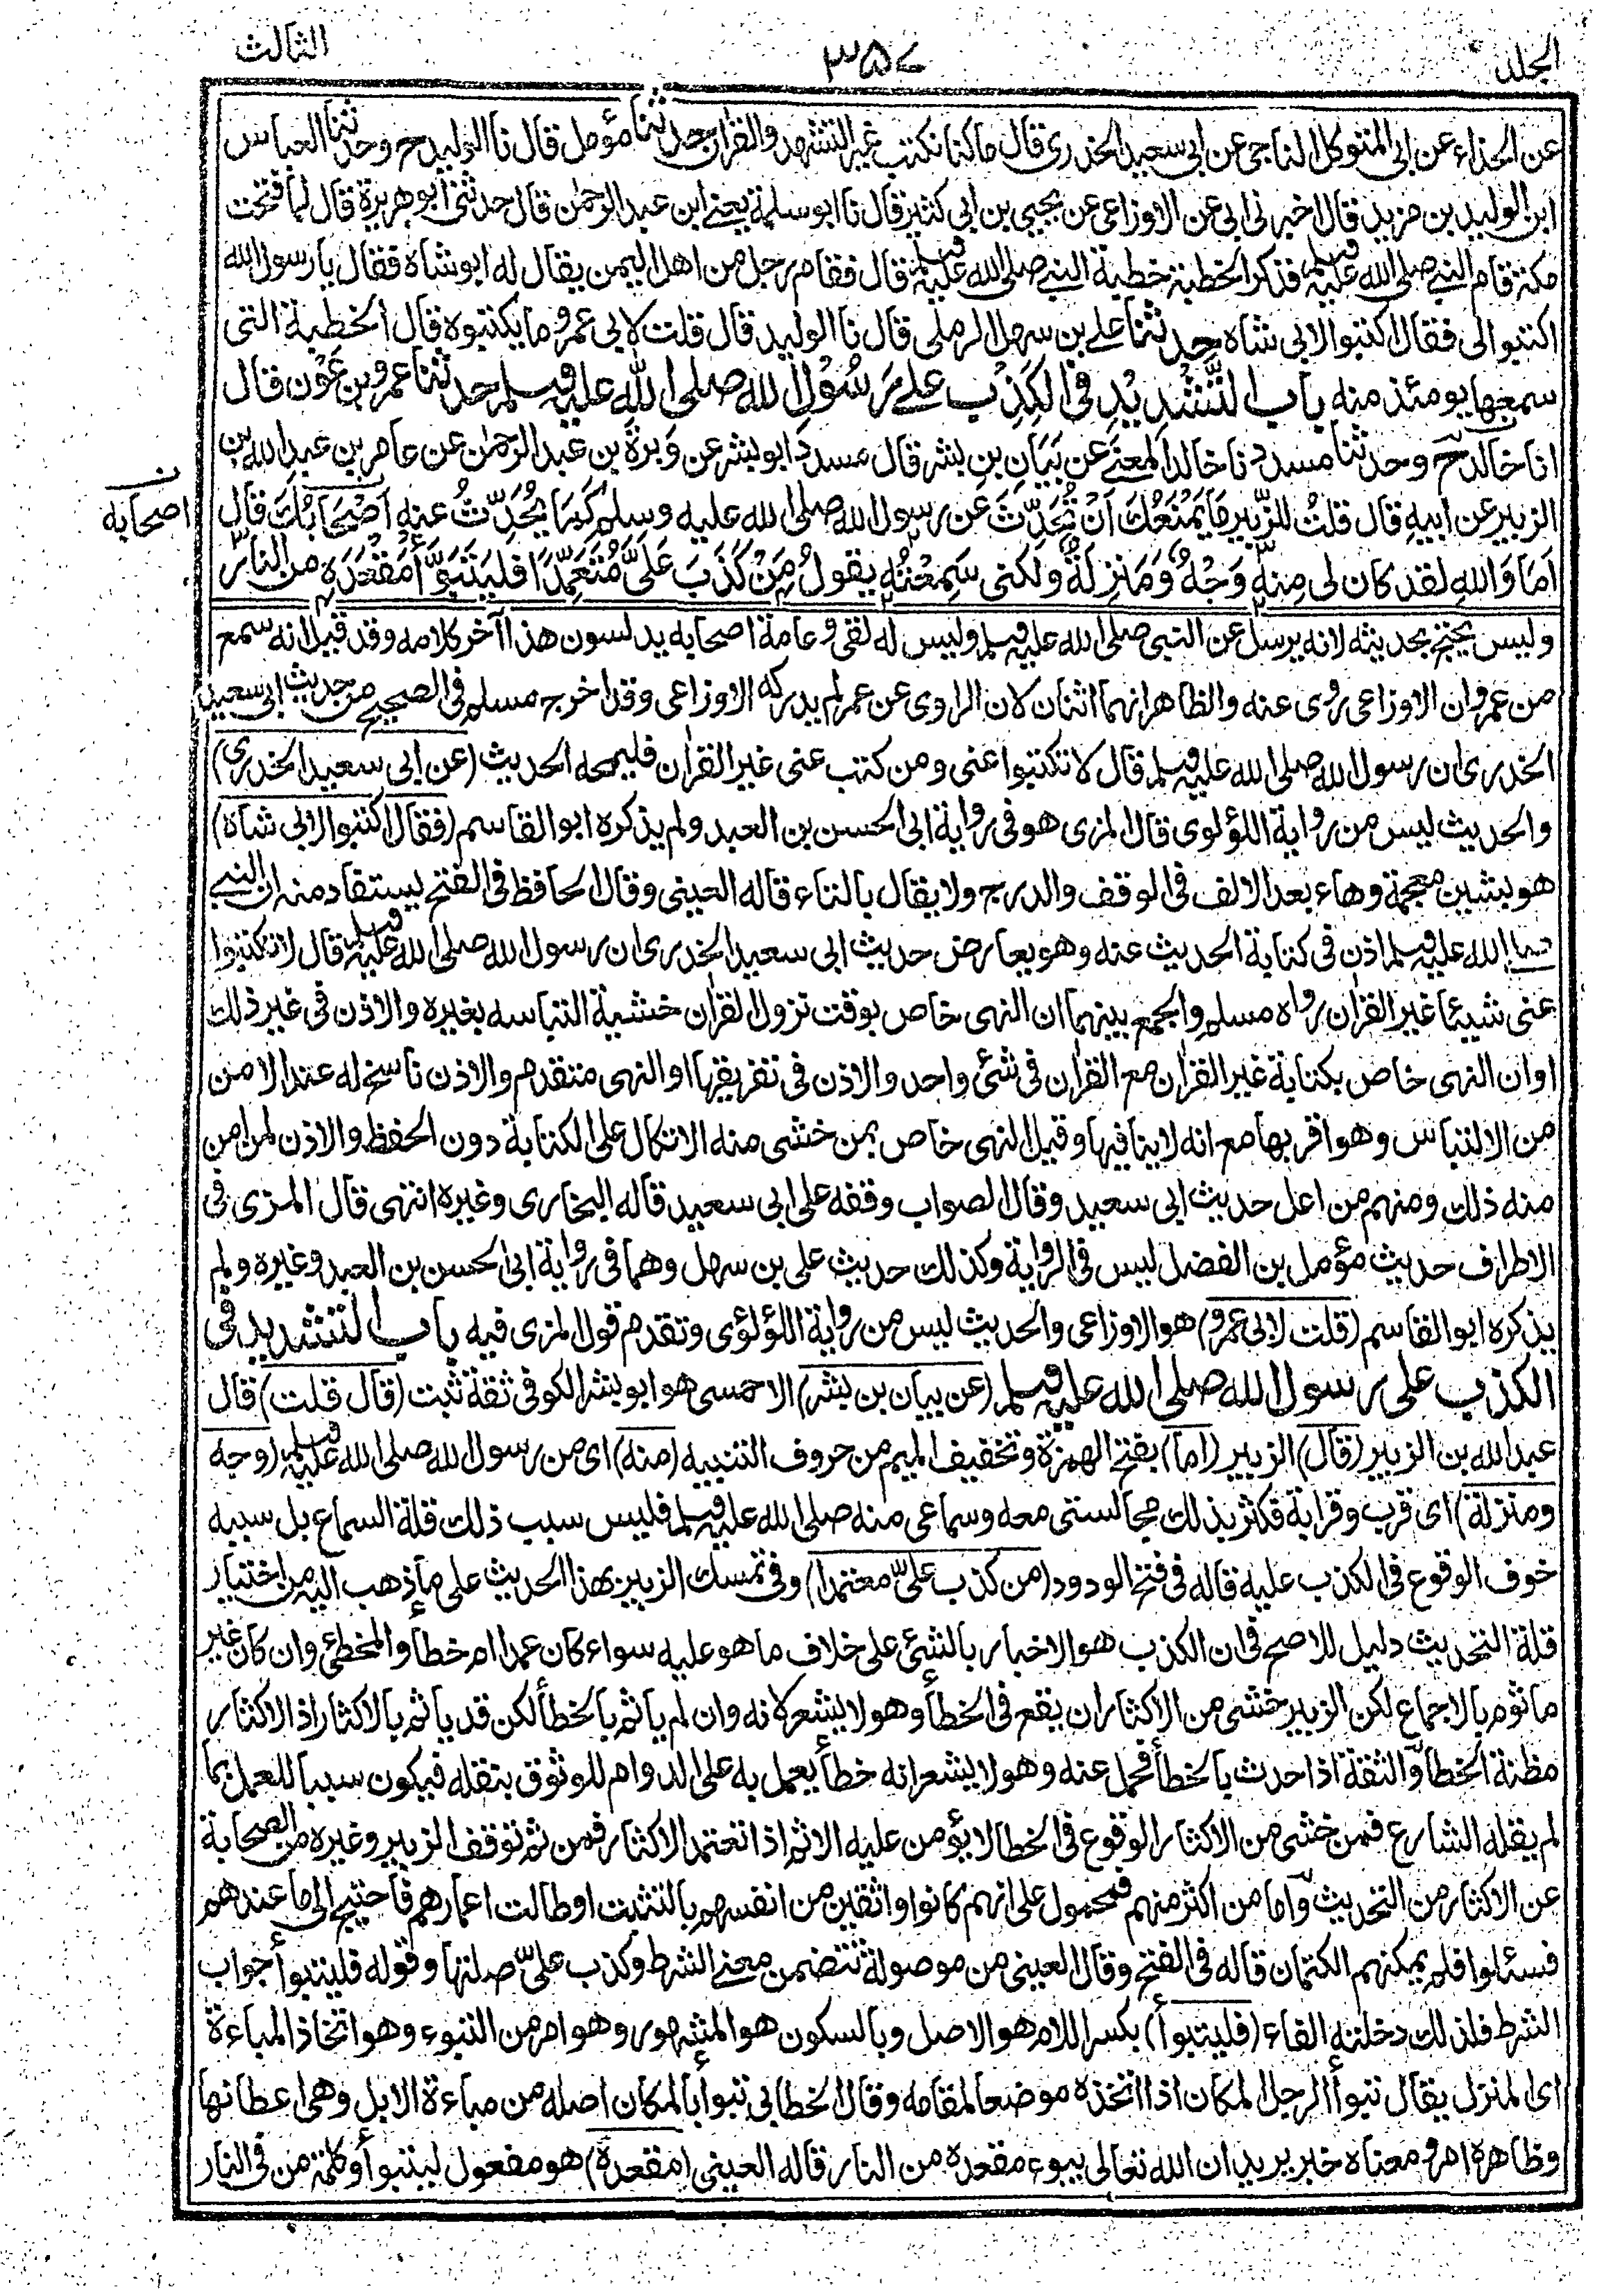 الجلد
٣٥٧
الثالث
عن الحذاء عن ابى المتوكل الناجى عن ابى سعيد الخدرى قال ما كنا نكتب غير التشهد والقرآن حدثنا مؤمل قال نا الوليد ح وحدثنا العباس
ابن الوليد بن مزيد قال اخبرنى ابى عن الاوزاعى عن يحيى بن ابى كثير قال نا ابو سلمة يعنى ابن عبد الرحمٰن قال حدثنى ابو هريرة قال لما فتحت
مكة قام النبى صلى الله عليه وسلم فذكر الخطبة خطبة النبى صلى الله عليه وسلم قال فقام رجل من اهل اليمن يقال له ابو شاه فقال يا رسول الله
اكتبوا لى فقال اكتبوا لابى شاه حدثنا على بن سهل الرملى قال نا الوليد قال قلت لابى عمرو ما يكتبوه قال الخطبة التى
سمعها يومئذ منه باب التَّشْدِيْدِ فى الكَذِبِ على رَسُوْلِ الله صلى الله عليه وسلم حدثنا عمرو بن عَوْن قال
انا خالد ح وحدثنا مسدد نا خالد المعنى عن بَيَانِ بنِ بِشْر قال مسدد ابو بشر عن وَبَرَةَ بن عبد الرحمٰن عن عامر بن عبد الله بن
الزبير عن ابيهِ قال قلتُ للزُّبيرِ مَا يَمْنَعُكَ اَنْ تُحَدِّثَ عن رسول الله صلى الله عليه وسلم كَمَا يُحَدِّثُ عنهِ اَصْحَابُكَ قال
اصحابه
اَمَا وَاللهِ لقد كان لى مِنهُ وَجْهٌ وَمَنزِلَةٌ ولكنى سَمِعْتُه يقولُ مَنْ كَذَبَ عَلَىَّ مُتَعَمِّدًا فليَتَبَوَّأْ مَقْعَدَه من النار
وليس يحتج بحديثه لانه يرسل عن النبى صلى الله عليه وسلم وليس له لقى وعامة اصحابه يدلسون هذا آخر كلامه وقد قيل انه سمع
من عمرو ان الاوزاعى روى عنه والظاهر انهما اثنان لان الراوى عن عمر لم يدركه الاوزاعى وقد اخرجه مسلم فى الصحيح من حديث ابى سعيد
الخدرى ان رسول الله صلى الله عليه وسلم قال لا تكتبوا عنى ومن كتب عنى غير القرآن فليمحه الحديث (عن ابى سعيد الخدرى)
والحديث ليس من رواية اللؤلوى قال المزى هو فى رواية ابى الحسن بن العبد ولم يذكره ابو القاسم (فقال اكتبوا لابى شاه)
هو بشين معجمة وهاء بعد الالف فى الوقف والدرج ولا يقال بالتاء قاله العينى وقال الحافظ فى الفتح يستفاد منه ان النبى
صلى الله عليه وسلم اذن فى كتابة الحديث عنه وهو يعارض حديث ابى سعيد الخدرى ان رسول الله صلى الله عليه وسلم قال لا تكتبوا
عنى شيئا غير القرآن رواه مسلم والجمع بينهما ان النهى خاص بوقت نزول القرآن خشية التباسه بغيره والاذن فى غير ذلك
او ان النهى خاص بكتابة غير القرآن مع القرآن فى شئ واحد والاذن فى تفريقها او النهى متقدم والاذن ناسخ له عند الامن
من الالتباس وهو اقربها مع انه لا ينافيها وقيل النهى خاص بمن خشى منه الاتكال على الكتابة دون الحفظ والاذن لمن امن
منه ذلك ومنهم من اعل حديث ابى سعيد وقال الصواب وقفه على ابى سعيد قاله البخارى وغيره انتهى قال المزى فى
الاطراف حديث مؤمل بن الفضل ليس فى الرواية وكذلك حديث على بن سهل وهما فى رواية ابى الحسن بن العبد وغيره ولم
يذكره ابو القاسم (قلت لابى عمرو) هو الاوزاعى والحديث ليس من رواية اللؤلؤى وتقدم قول المزى فيه باب التشديد فى
الكذب على رسول الله صلى الله عليه وسلم (عن بيان بن بشر) الاحمسى هو ابو بشر الكوفى ثقة ثبت (قال قلت) قال
عبد الله بن الزبير (قال) الزبير (اما) بفتح الهمزة وتخفيف الميم من حروف التنبيه (منه) اى من رسول الله صلى الله عليه وسلم (وجه
ومنزلة) اى قرب وقرابة فكثر بذلك مجالستى معه وسماعى منه صلى الله عليه وسلم فليس سبب ذلك قلة السماع بل سببه
خوف الوقوع فى الكذب عليه قاله فى فتح الودود (من كذب علىّ متعمدا) وفى تمسك الزبير بهذا الحديث على ما ذهب اليه من اختيار
قلة التحديث دليل للاصح فى ان الكذب هو الاخبار بالشئ على خلاف ما هو عليه سواء كان عمدا ام خطأ والمخطئ وان كان غير
ماثوم بالاجماع لكن الزبير خشى من الاكثار ان يقع فى الخطأ وهو لا يشعر لانه وان لم ياثم بالخطأ لكن قد ياثم بالاكثار اذ الاكثار
مظنة الخطأ والثقة اذا حدث بالخطأ فحمل عنه وهو لا يشعر انه خطأ يعمل به على الدوام للوثوق بنقله فيكون سببا للعمل بما
لم يقله الشارع فمن خشى من الاكثار الوقوع فى الخطأ لا يؤمن عليه الاثم اذا تعمد الاكثار فمن ثم توقف الزبير وغيره من الصحابة
عن الاكثار من التحديث واما من اكثر منهم فمحمول على انهم كانوا واثقين من انفسهم بالتثبت او طالت اعمارهم فاحتيج الى ما عندهم
فسئلوا فلم يمكنهم الكتمان قاله فى الفتح وقال العينى من موصولة تتضمن معنى الشرط وكذب علىّ صلتها وقوله فليتبوأ جواب
الشرط فلذلك دخلته الفاء (فليتبوأ) بكسر اللام هو الاصل وبالسكون هو المشهور وهو امر من التبوء وهو اتخاذ المباءة
اى المنزل يقال تبوأ الرجل المكان اذا اتخذه موضعا لمقامه وقال الخطابى تبوأ بالمكان اصله من مباءة الابل وهى اعطانها
وظاهره امر ومعناه خبر يريد ان الله تعالى يبوء مقعده من النار قاله العينى (مقعده) هو مفعول ليتبوأ وكلمة من فى النار